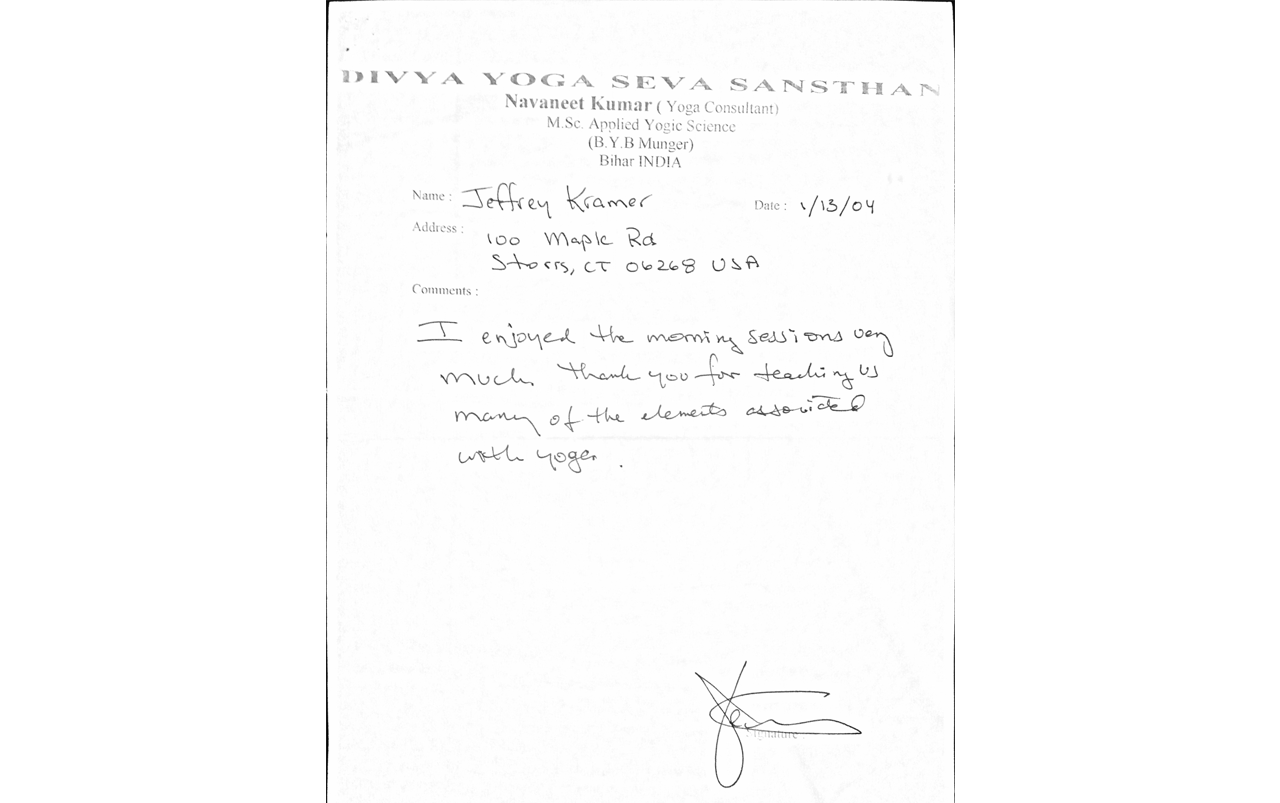 DIVYA YOGA SEVA SANSTHAN
Navaneet Kumar ( Yoga Consultant)
M.Sc. Applied Yogic Science
(B.Y.B Munger)
Bihar INDIA
Name : Jeffrey Kramer Date : 1/13/04
Address : 100 Maple Rd
Storrs, CT 06268 USA
Comments :
I enjoyed the morning sessions very
much. Thank you for teaching us
many of the elements associated
with yoga.
Signature :